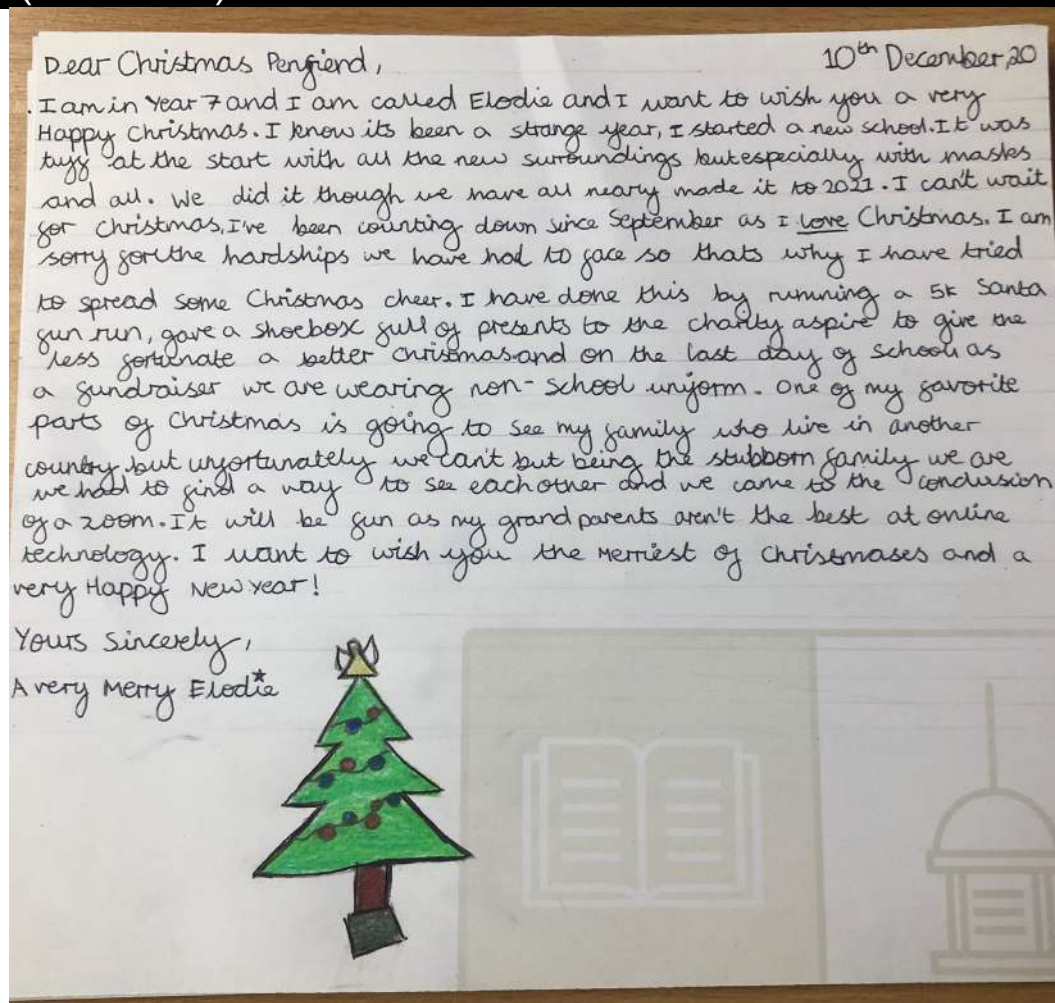 Dear Christmas Penfiend,
10th December,20
I am in Year 7 and I am called Elodie and I want to wish you a very
Happy Christmas. I know its been a strange year, I started a new school. It was
tuff at the start with all the new surroundings but especially with masks
and all. We did it though we have all neary made it to 2021. I can't wait
for Christmas, I've been counting down since September as I love Christmas. I am
sorry for the hardships we have had to face so thats why I have tried
to spread some Christmas cheer. I have done this by running a 5k Santa
fun run, gave a shoebox full of presents to the charity aspire to give the
less fortunate a better christmas and on the last day of school as
a fundraiser we are wearing non-school uniform. One of my favorite
parts of Christmas is going to see my family who live in another
country but unfortunately we can't but being the stubborn family we are
we had to find a way to see eachother and we came to the conclusion
of a zoom. It will be fun as my grandparents aren't the best at online
technology. I want to wish you the Merriest of Chrismases and a
very Happy New Year!
Yours Sincerely,
A very Merry Elodie